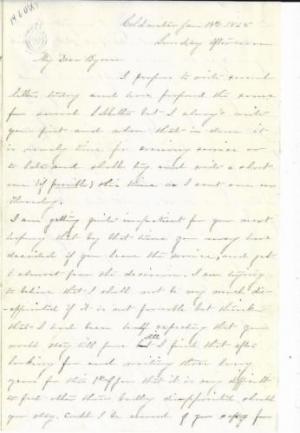 Coldwater Jan 18th 1865
Sunday afternoon
My Dear Byron
I propose to write several
letters today and have proposed the same
for several Sabbaths but I always write
your first and when that is done it
is nearly time for evening service or
to late and shall try and write a short
one (if possible) this time as I sent one on
Thursday.
I am getting quite impatient for your next
hoping that by that time you may have
decided if you leave the service, and yet
I almost fear the decision. I am trying
to believe that I shall not be very much dis-
appointed if it is not favorable but think
that I had been half expecting that you
would stay till June still I find that after
looking for and waiting three long
years for this that it is very difficult
to feel other than badly disappointed should
you stay. Could I be assured if you stay for